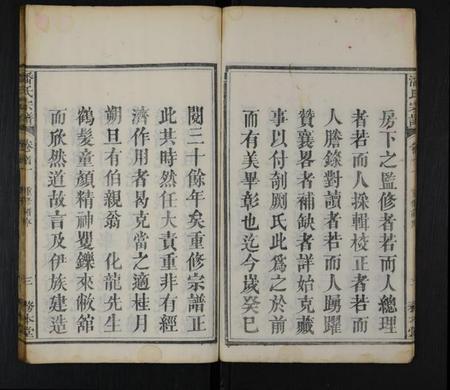 房下之監修者若而人總理
者若而人採輯校正者若而
人謄錄對讀者若而人踴躍
贊襄畧者補缺者詳始克藏
事以付剞劂氏此為之於前
而有美畢彰也迄今歲癸巳
潘氏宗譜
卷首一
三
務本堂
閱三十餘年矣重修宗譜正
此其時然任大責重非有經
濟作用者曷克當之適桂月
朔旦有伯親翁 化龍先生
鶴髮童顏精神矍鑠來敝舘
而欣然道故言及伊族建造